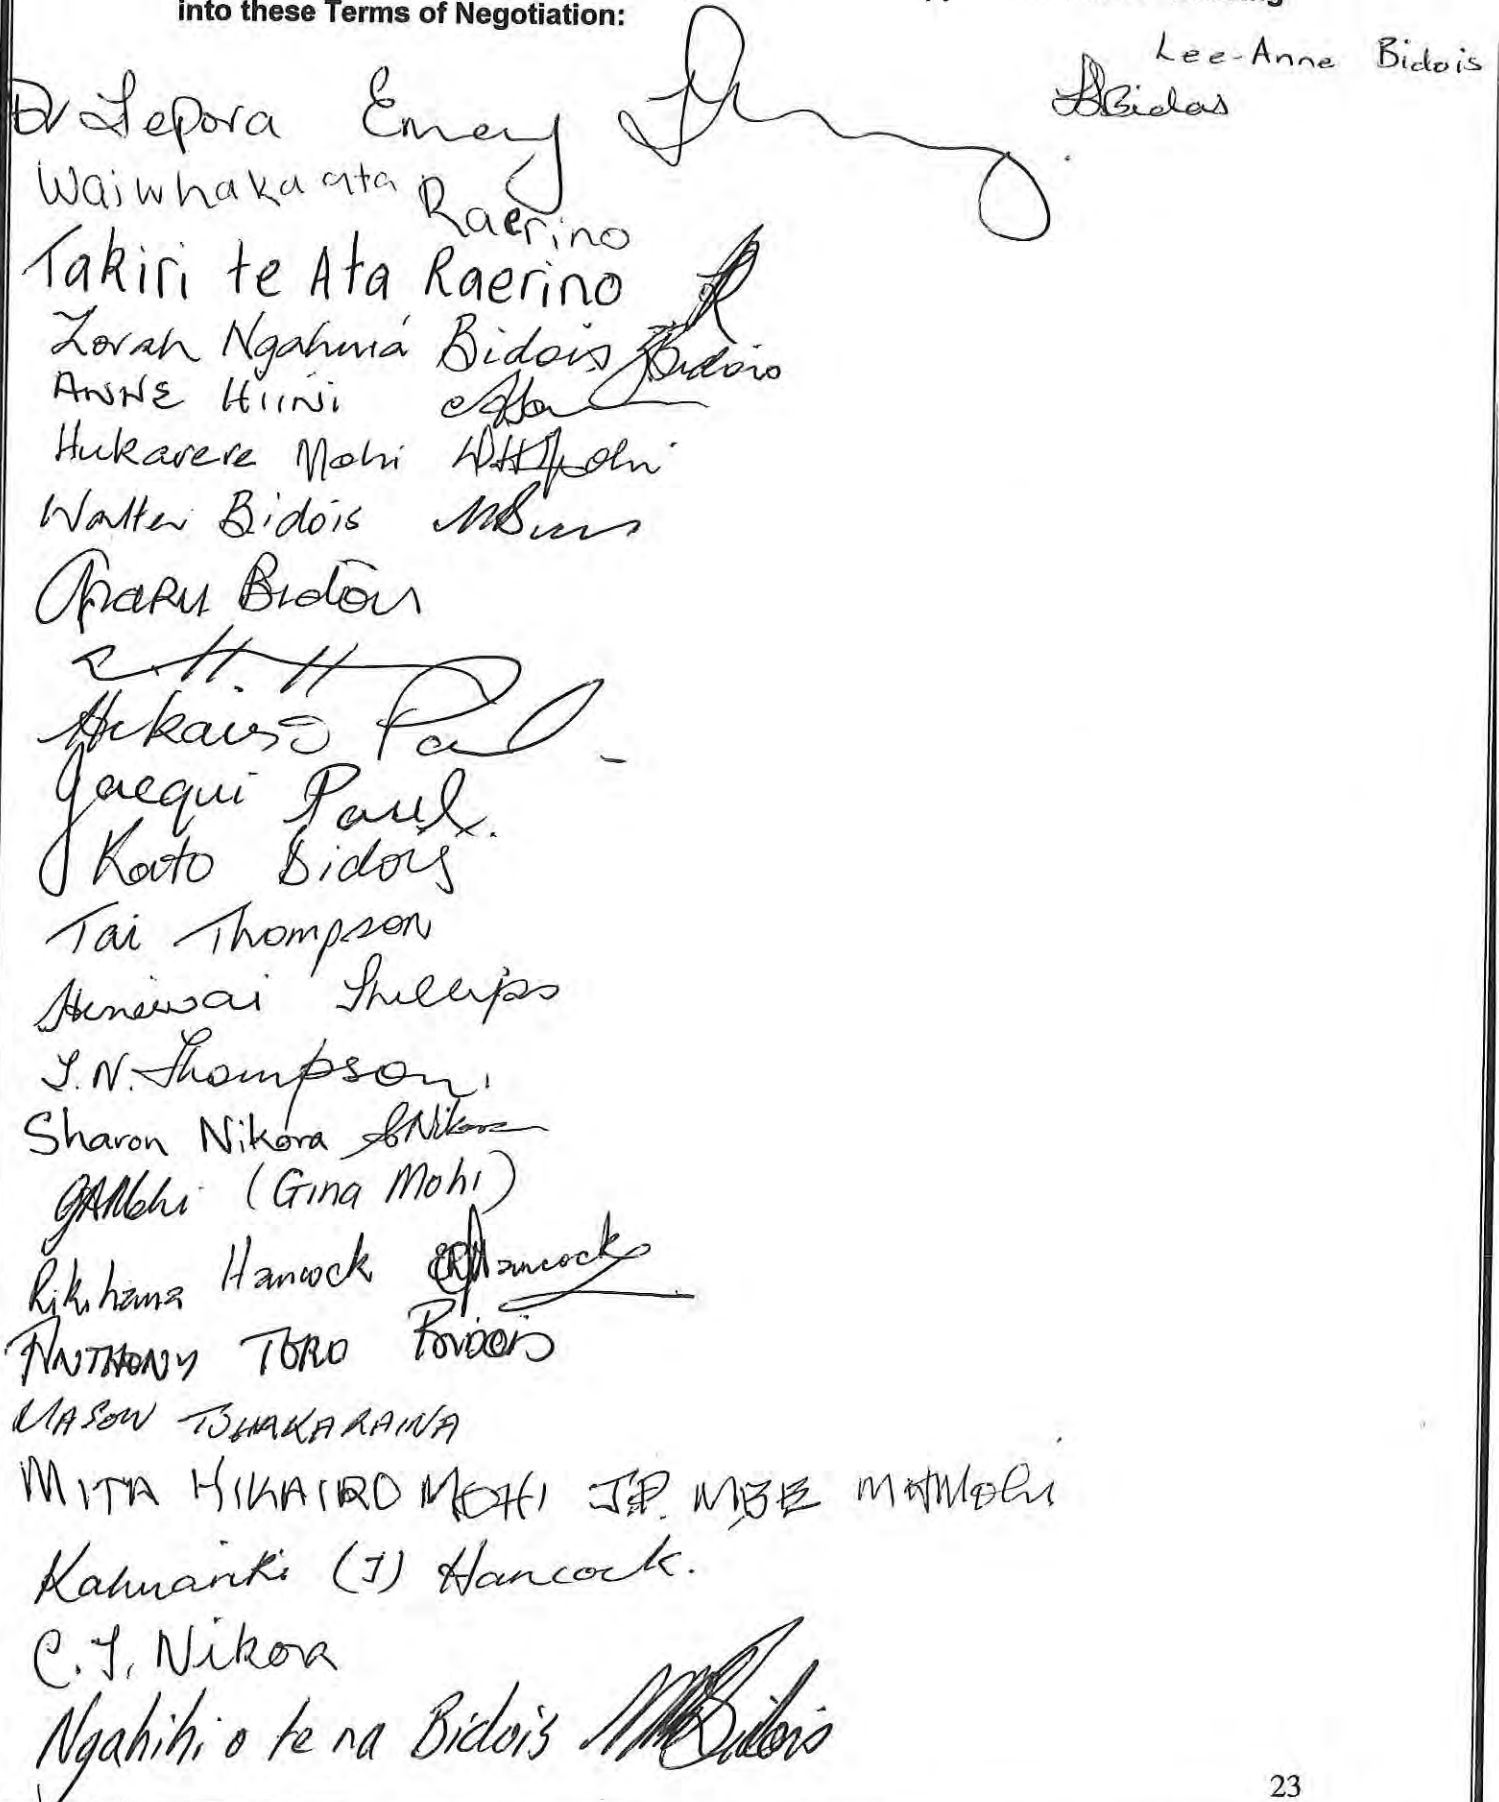 into these Terms of Negotiation:
Lee-Anne Bidois
Bidois
Dr Tepora Emery
Waiwhakaata Raerino
Takiri te Ata Raerino
Zorah Ngahuia Bidois Bidois
ANNE HIINI
Hukarere Mohi
Walter Bidois
Bidois
Hikairo Paul
Jacqui Paul.
Kato Bidois
Tai Thompson
Hinewai Phillips
T.N. Thompson
Sharon Nikora SNikora
GAMohi (Gina Mohi)
Rikihana Hancock Hancock
ANTHONY TORO Bidois
MASON TUHAKARAINA
MITA HIKAIRO MOHI JP. MBE
Kahuariki (J) Hancock.
C.J. Nikora
Ngahihi o te ra Bidois Bidois
23